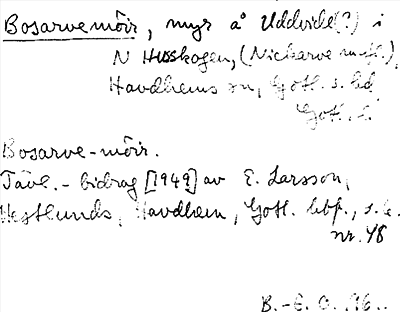 Bosarvemôir, myr å Uddvide(?) i
N Husskogen, (Nickarve m.fl.),
Havdhems sn, Gotl. s. hd
Gotl. l.
Bosarve-môir.
Tävl.-bidrag [1949] av E. Larsson,
Havdhem, Gotl. s. l.
nr. 48
B.-E. O.